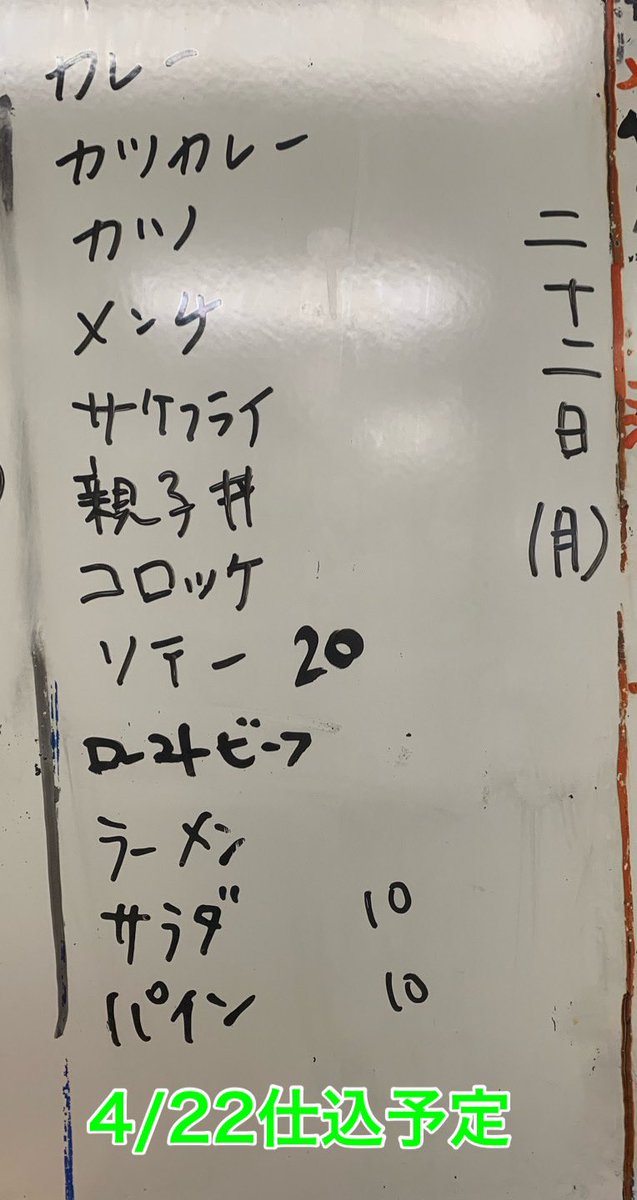 二十二日(月)
カレー
カツカレー
カツ
メンケ
サケフライ
親子丼
コロッケ
ソテー 20
ローストビーフ
ラーメン
サラダ 10
パイン 10
4/22仕込予定